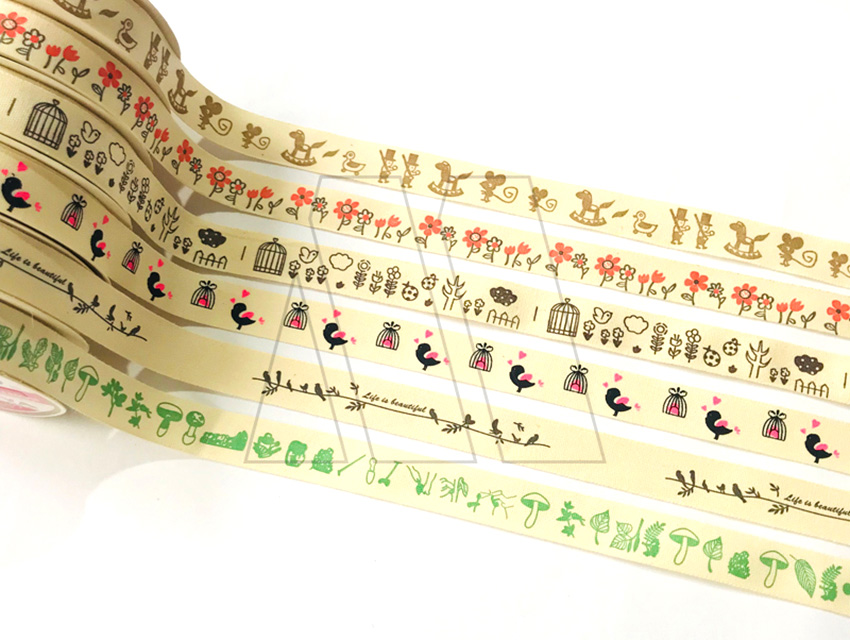 Life is beautiful
Life is beautiful
Life is beautiful